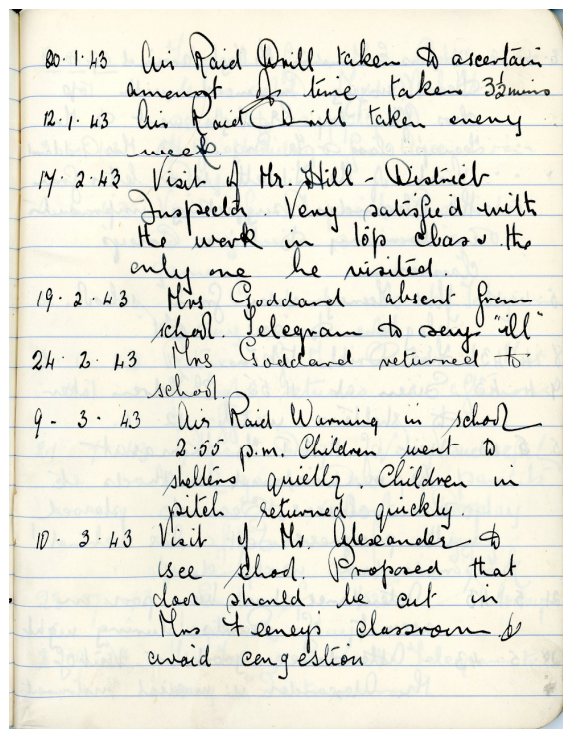 20.1.43 Air Raid Drill taken to ascertain
amount of time taken 3½mins
12.1.43 Air Raid Drill taken every
week
17.2.43 Visit of Mr. Hill - District
Inspector. Very satisfied with
the work in top class. the
only one he visited.
19.2.43 Mrs Goddard absent from
school. Telegram to say "ill"
24.2.43 Mrs Goddard returned to
school.
9-3.43 Air Raid Warning in school
2.55 p.m. Children went to
shelters quietly. Children in
pitch returned quickly
10.3.43 Visit of Mr. Alexander to
see school. Proposed that
door should be cut in
Mrs Feeney's classroom to
avoid congestion